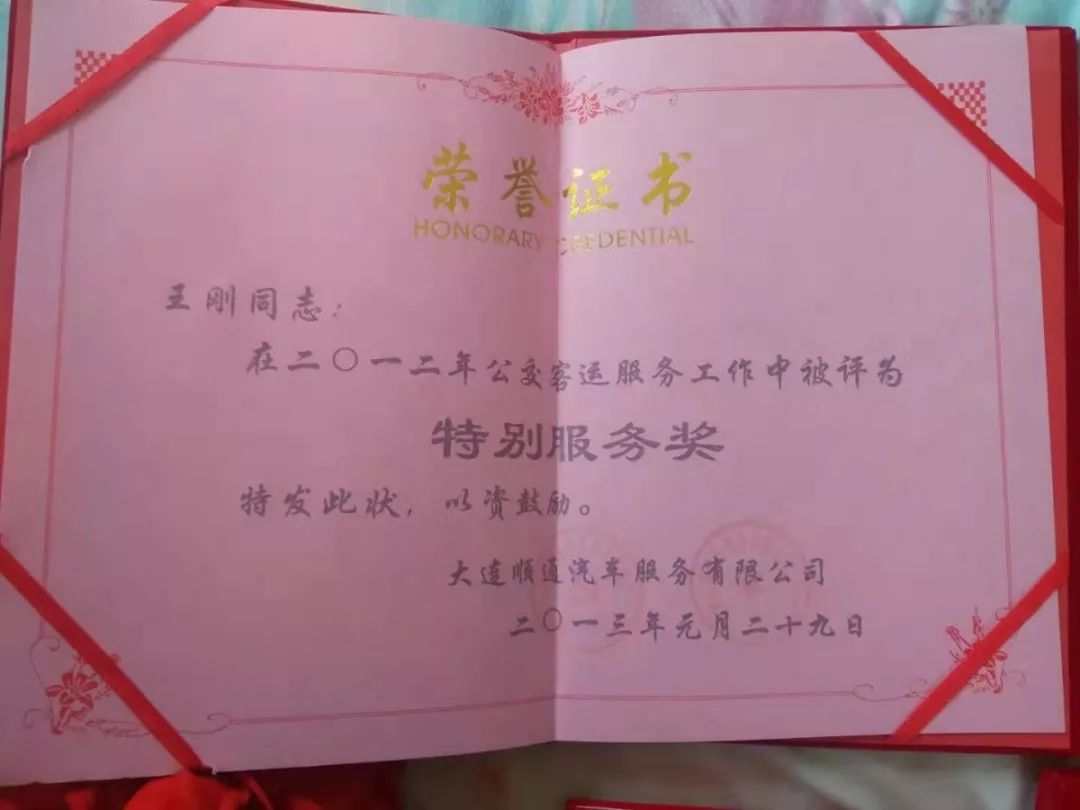 荣誉证书
HONORARY CREDENTIAL
王刚同志：
在二〇一二年公交客运服务工作中被评为
特别服务奖
特发此状，以资鼓励。
大连顺通汽车服务有限公司
二〇一三年元月二十九日